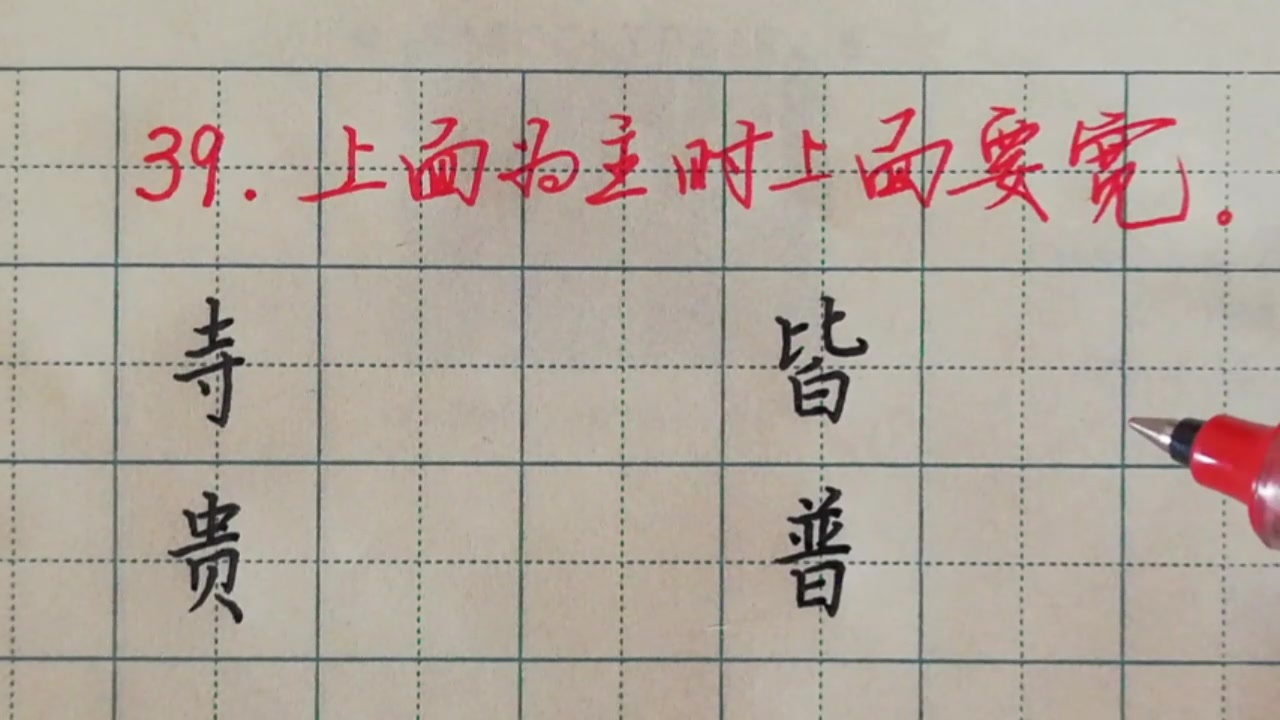 39.上面为主时上面要宽.
寺 皆
贵 普